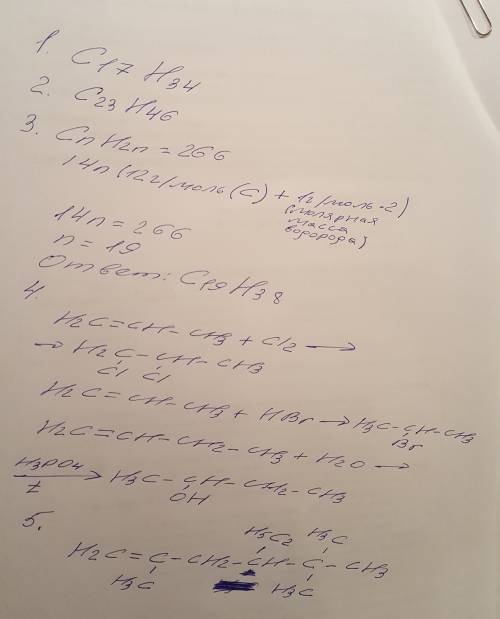 1. C17H34
2. C23H46
3. CnH2n = 266
14n (12г/моль (C) + 1г/моль·2)
(молярная
масса
водорода)
14n = 266
n = 19
Ответ: C19H38
4.
H2C=CH-CH3 + Cl2 →
→ H2C-CH-CH3
Cl Cl
H2C=CH-CH3 + HBr → H3C-CH-CH3
Br
H2C=CH-CH2-CH3 + H2O →
H3PO4
t
→ H3C-CH-CH2-CH3
OH
5.
H5C2 H3C
H2C=C-CH2-CH-C-CH3
H3C H3C